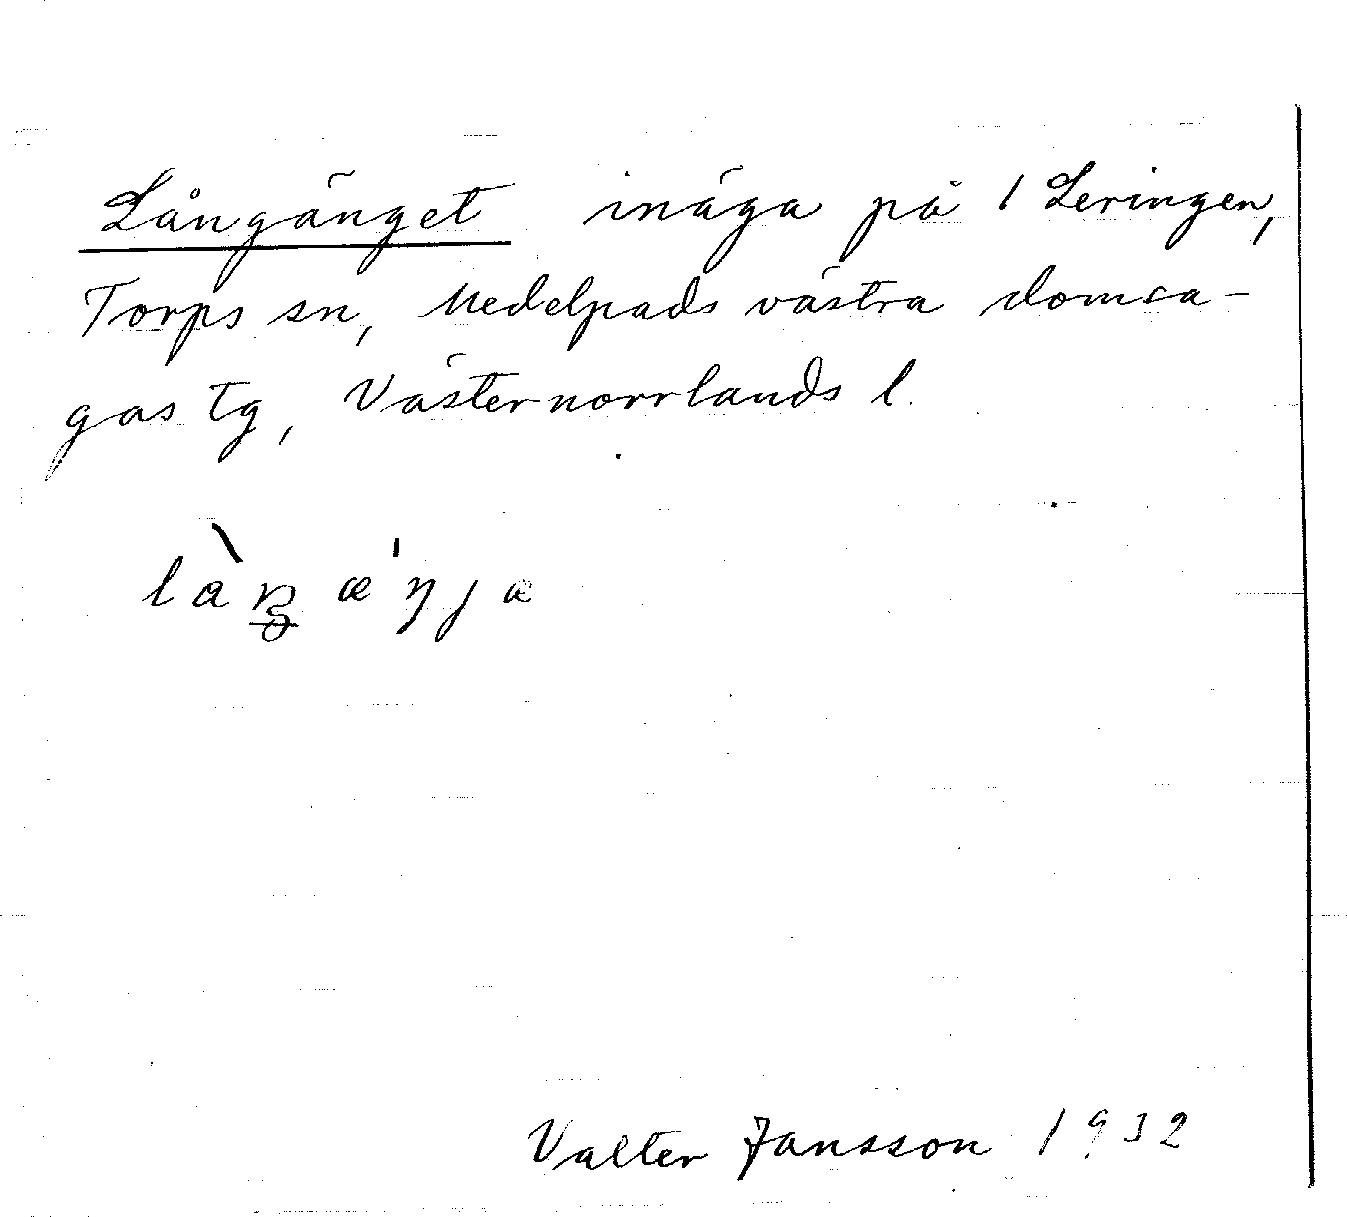 Långänget inäga på 1 Leringen,
Torps sn, Medelpads västra domsa-
gas tg, Västernorrlands l.
Valter Jansson 1932